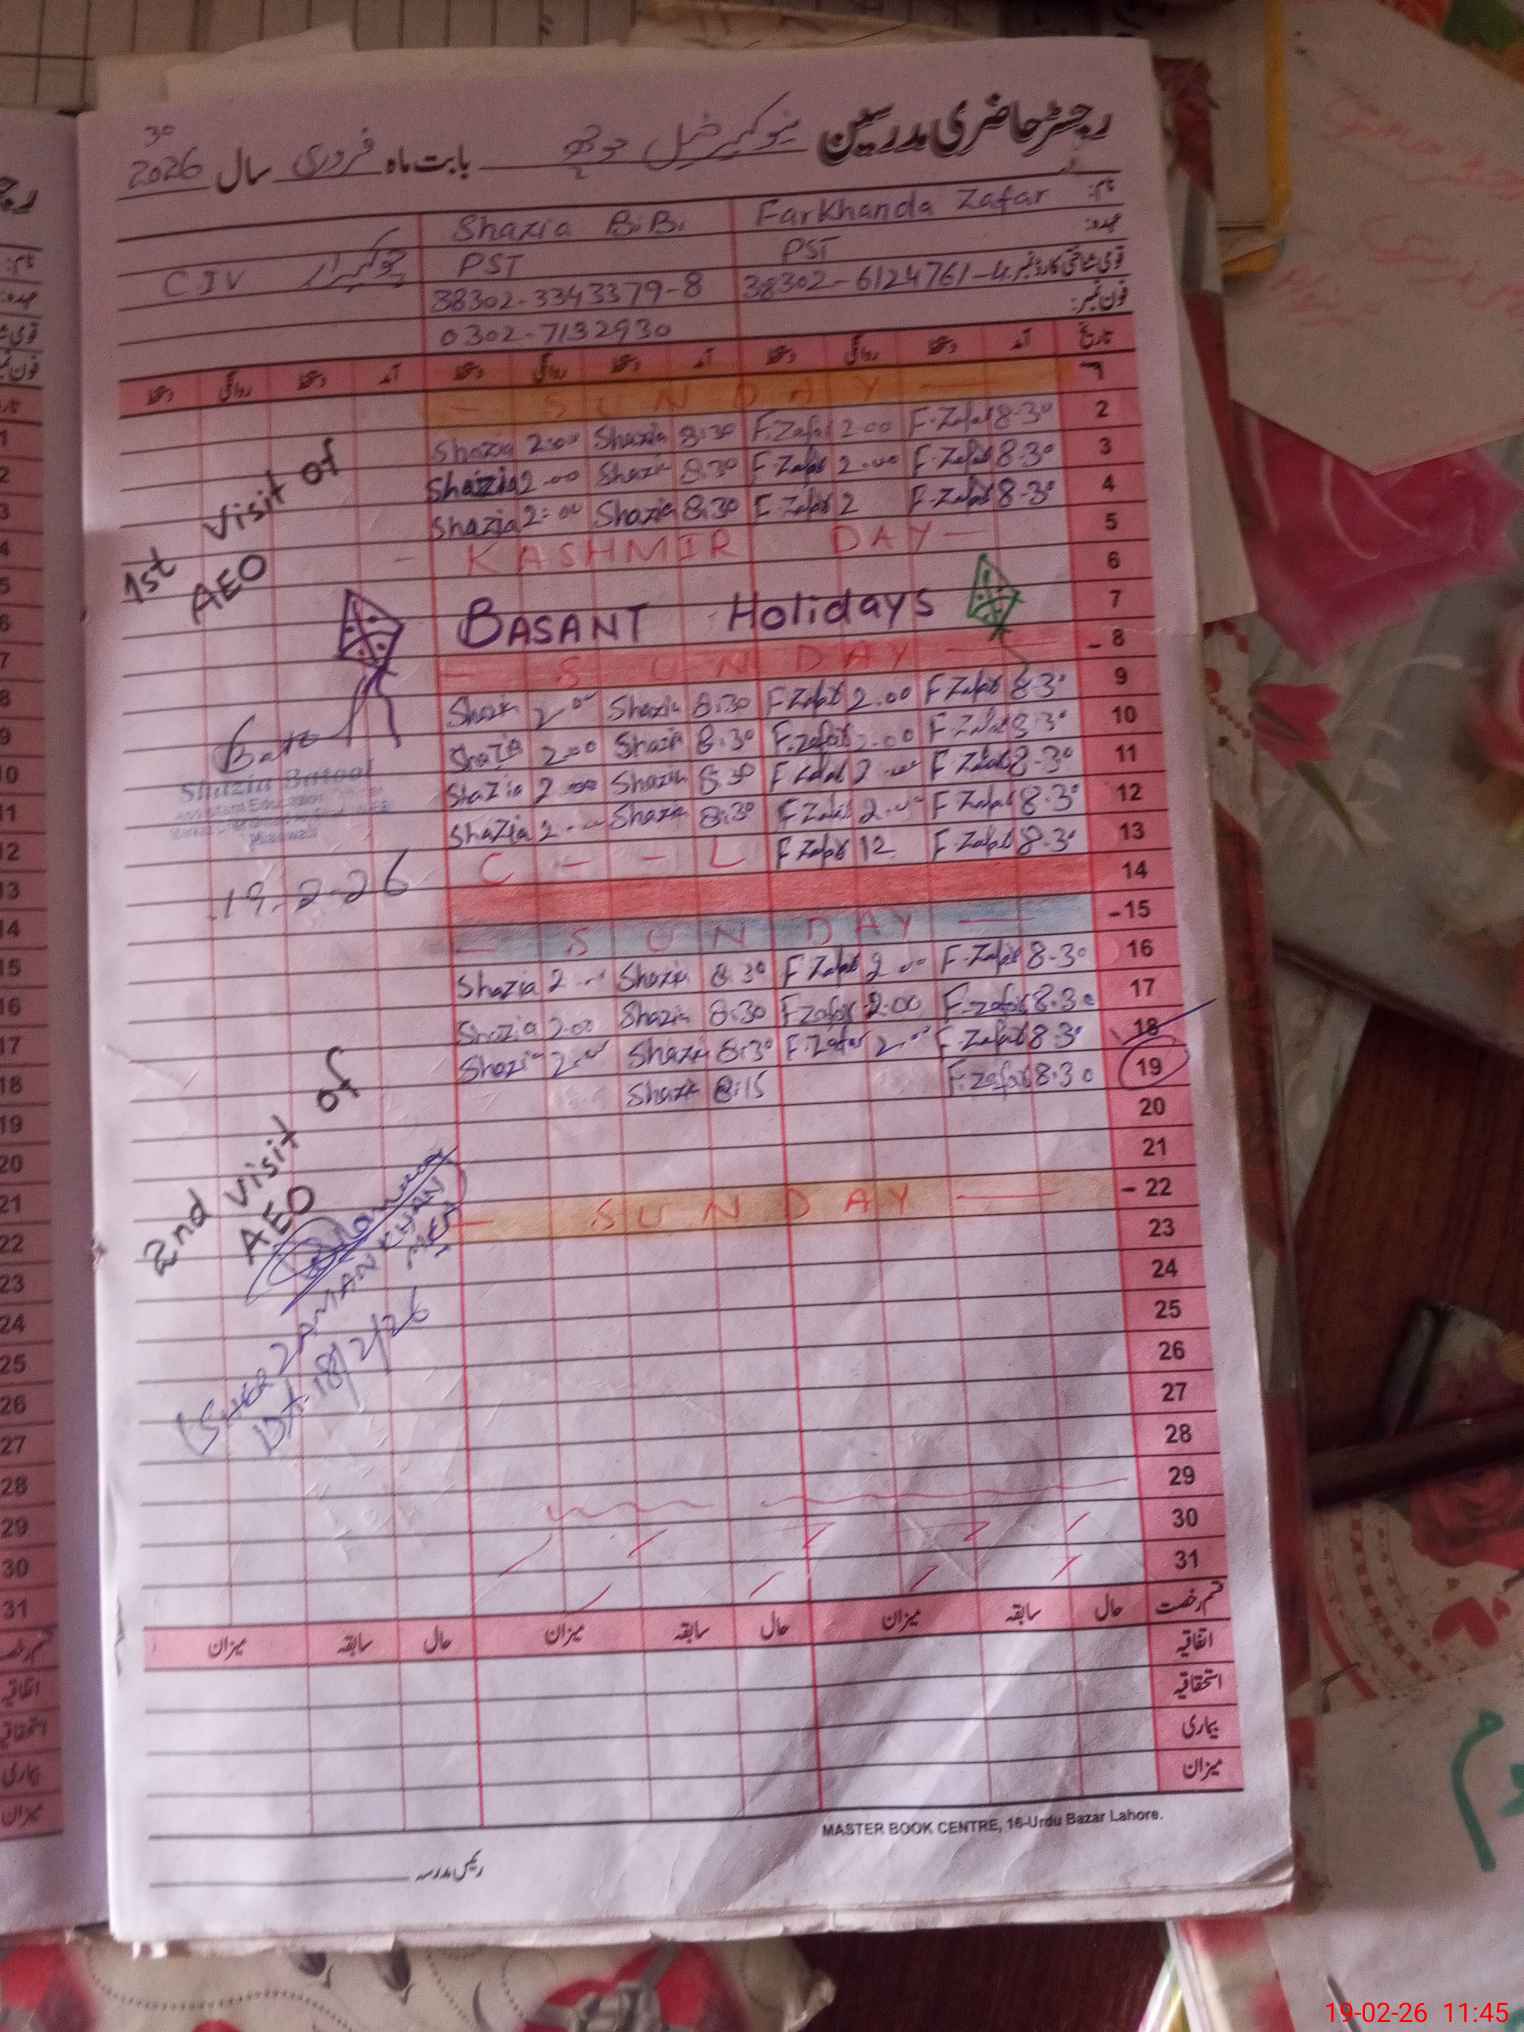 رجسٹر حاضری مدرسین نیو کمیر خیل موچھ بابت ماہ فروری سال 2026
30
نام: Farkhanda Zafar Shazia BiBi
عہدہ: PST PST چوکیدار CIV
قومی شناختی کارڈ نمبر: 38302-6124761-4 38302-3343379-8
فون نمبر: 0302-7132930
تاریخ آمد دستخط روانگی دستخط آمد دستخط روانگی دستخط آمد دستخط روانگی دستخط
1 - SUNDAY -
2 F.Zafar 8.30 F.Zafar 2.00 Shazia 8:30 Shazia 2:00
3 F.Zafar 8.30 F.Zafar 2.00 Shazia 8:30 Shazia 2.00
4 F.Zafar 8.30 F.Zafar 2 Shazia 8:30 Shazia 2:00
5 - KASHMIR DAY -
6
7 BASANT Holidays
- 8 - SUNDAY -
9 F.Zafar 8.30 F.Zafar 2.00 Shazia 8:30 Shazia 2.00
10 F.Zafar 8.30 F.Zafar 2.00 Shazia 8:30 Shazia 2.00
11 F.Zafar 8.30 F.Zafar 2.00 Shazia 8:30 Shazia 2.00
12 F.Zafar 8.30 F.Zafar 2.00 Shazia 8:30 Shazia 2.00
13 F.Zafar 8.30 F.Zafar 12 C - - L
14
- 15 - SUNDAY -
16 F.Zafar 8.30 F.Zafar 2.00 Shazia 8:30 Shazia 2.00
17 F.zafar 8.30 F.zafar 2.00 Shazia 8:30 Shazia 2.00
18 F.Zafar 8.30 F.Zafar 2.00 Shazia 8:30 Shazia 2.00
19 F.zafar 8.30 Shazia 8:15
20
21
- 22 - SUNDAY -
23
24
25
26
27
28
29
30
31
1st visit of
AEO
Shazia Batool
Mianwali
19.2.26
2nd visit of
AEO
SHER ZAMAN KHAN
MEA
Dt. 18/2/26
قسم رخصت حال سابقہ میزان حال سابقہ میزان حال سابقہ میزان
اتفاقیہ
استحقاقیہ
بیماری
میزان
MASTER BOOK CENTRE, 16-Urdu Bazar Lahore.
رئیس مدرسہ
19-02-26 11:45